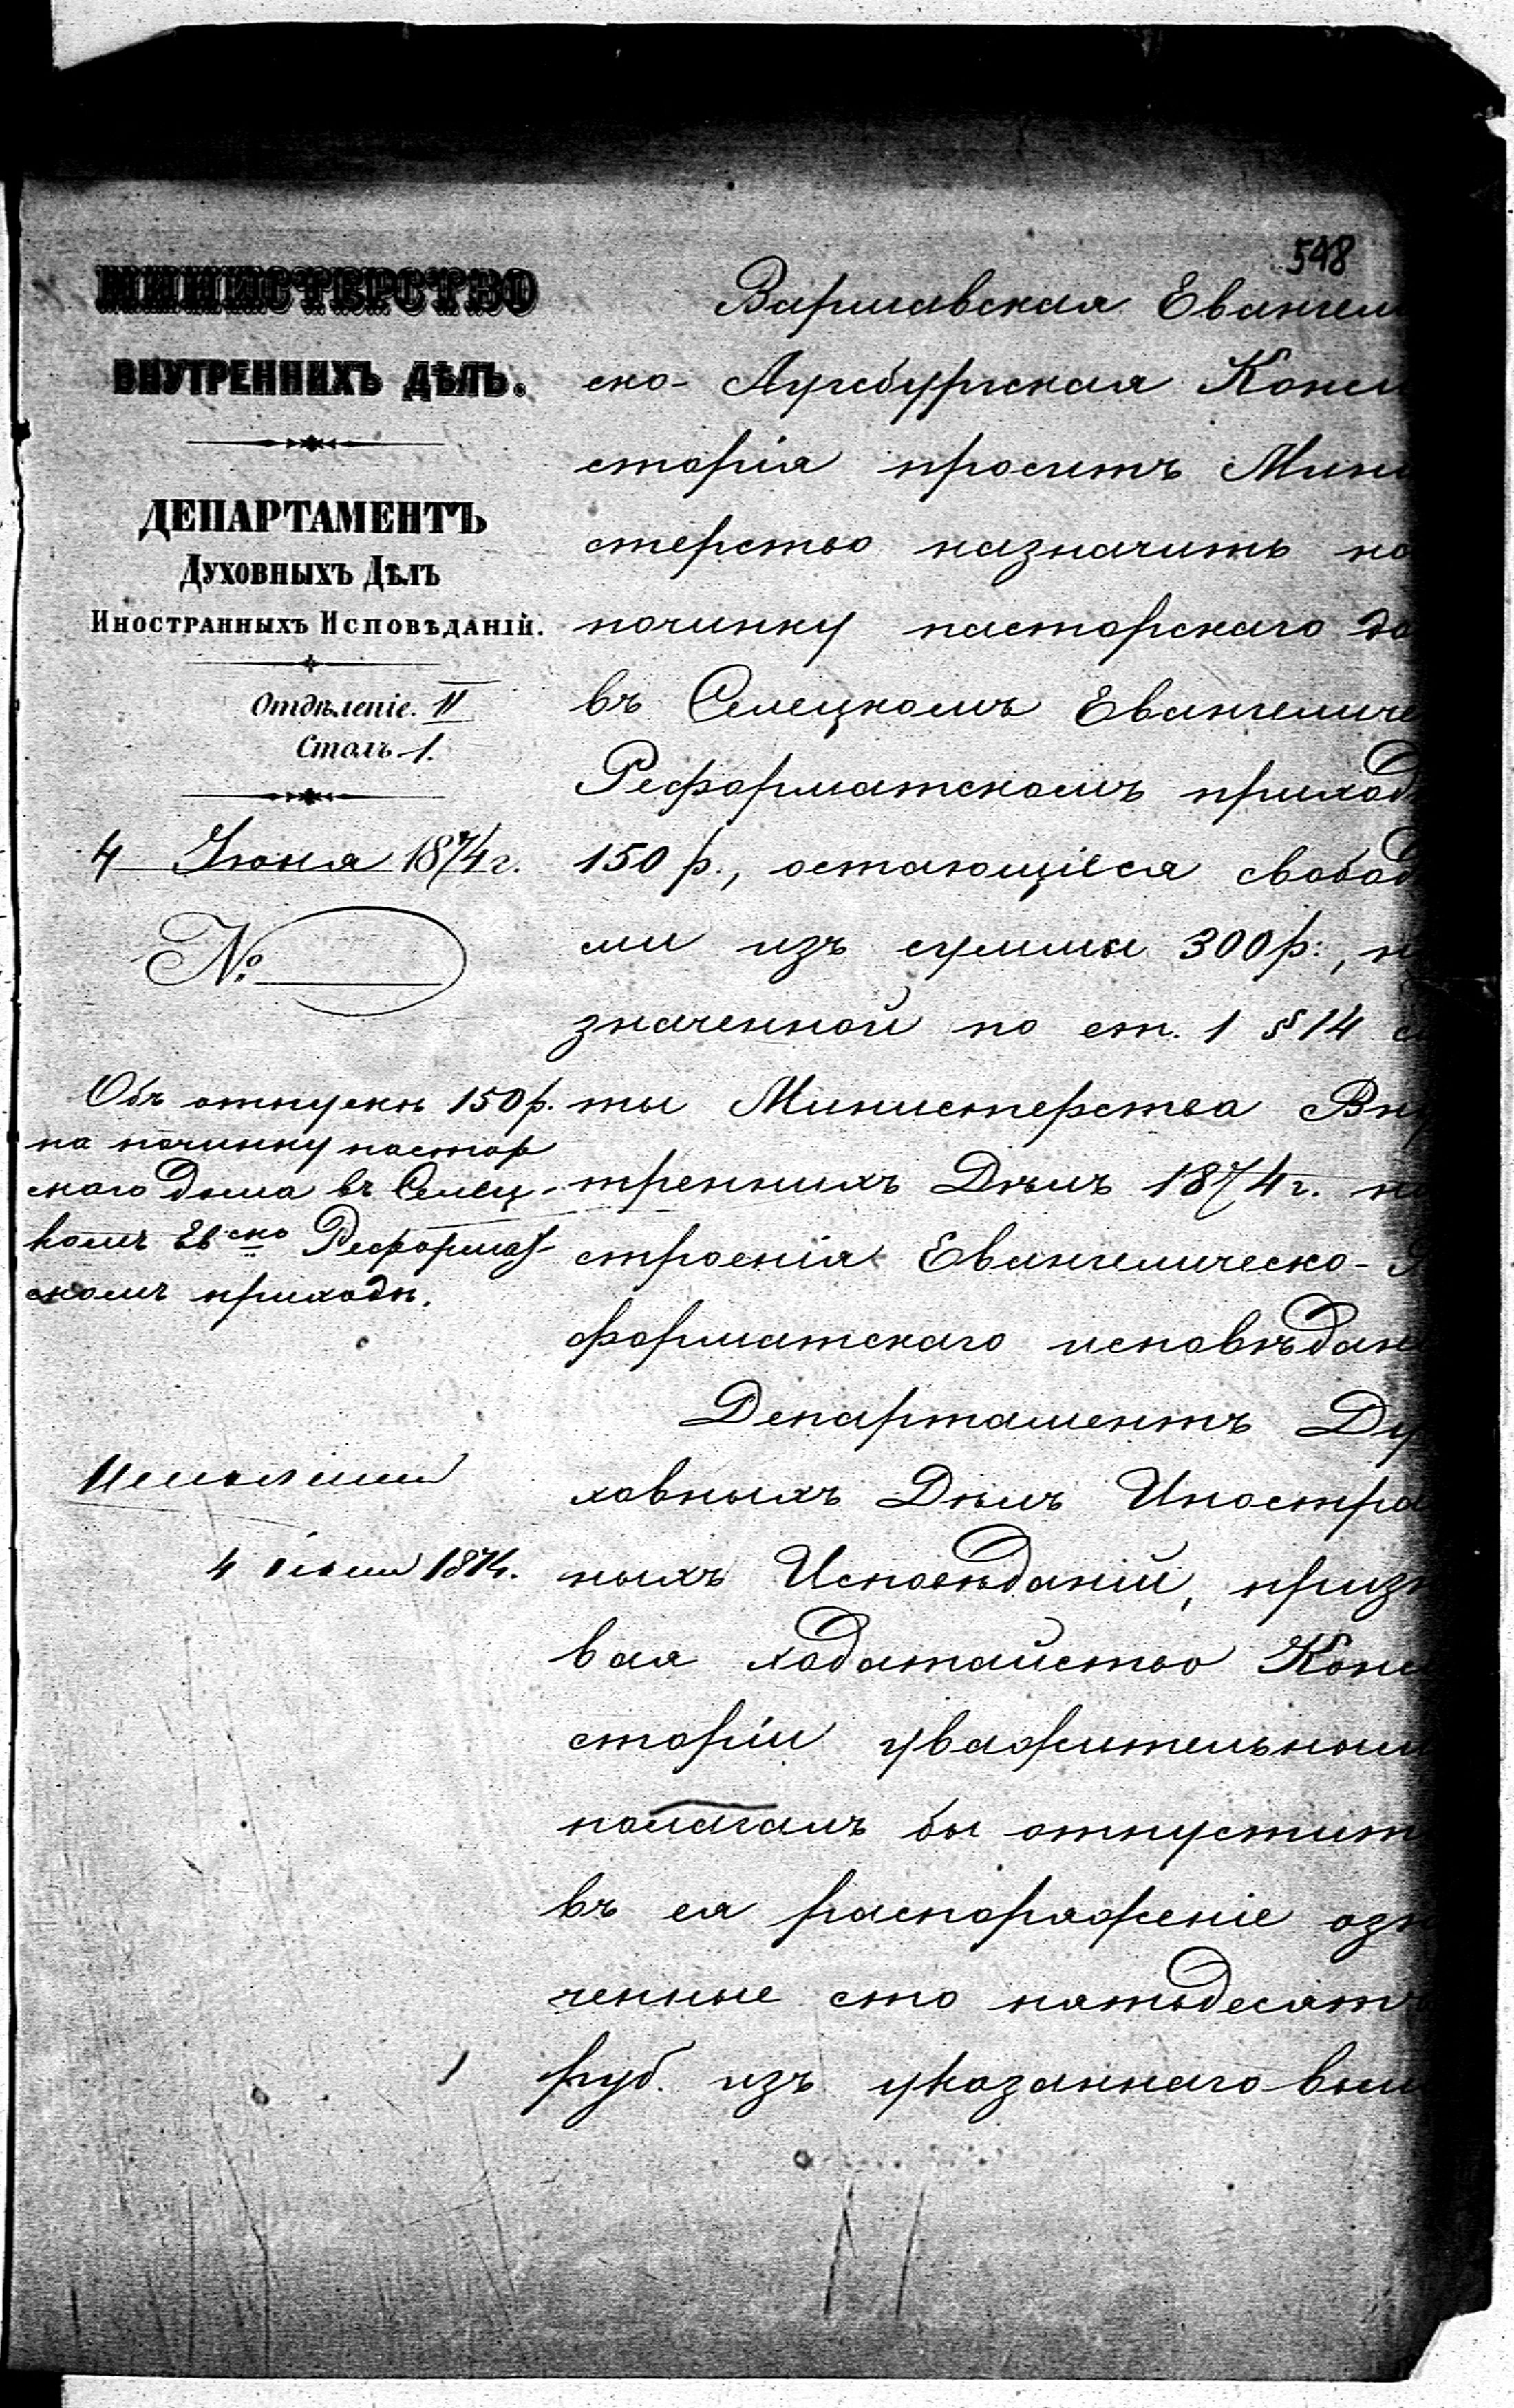 548
МИНИСТЕРСТВО
ВНУТРЕННИХЪ ДѢЛЪ.
ДЕПАРТАМЕНТЪ
Духовныхъ Дѣлъ
Иностранныхъ Исповѣданій.
Отдѣленіе. II
Столъ 1.
4 Июня 1874 г.
№
Объ отпускѣ 150 р.
на починку пастор
скаго дома въ Селец-
комъ Ев ско Реформат
скомъ приходѣ.
4 1874.
Варшавская Евангели
ско- Аугсбургская Конси
сторія проситъ Мини
стерство назначить на
починку пасторскаго до
въ Селецкомъ Евангеличе
Реформатскомъ приходѣ
150 р., остающіеся свобод
ми изъ суммы 300 р:, н
значенной по ст. 1 § 14 с
ты Министерства Вну
треннихъ Дѣлъ 1874 г. на
строенія Евангелическо- Р
форматскаго исповѣдані
Департаментъ Ду
ховныхъ Дѣлъ Иностра
ныхъ Исповѣданій, призн
вая ходатайство Конси
сторіи уважительным
полагалъ бы отпустит
въ ея распоряженіе озн
ченные сто пятьдесятъ
руб. изъ указаннаго выш